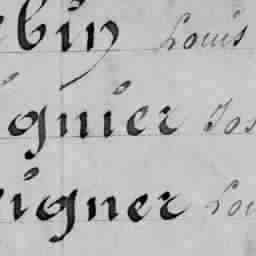 bin Louis
ignier Jos
igner Lou